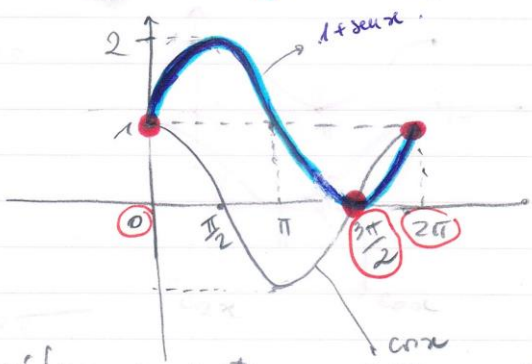 1+senx.
2
1
0 π/2 π 3π/2 2π
cosx